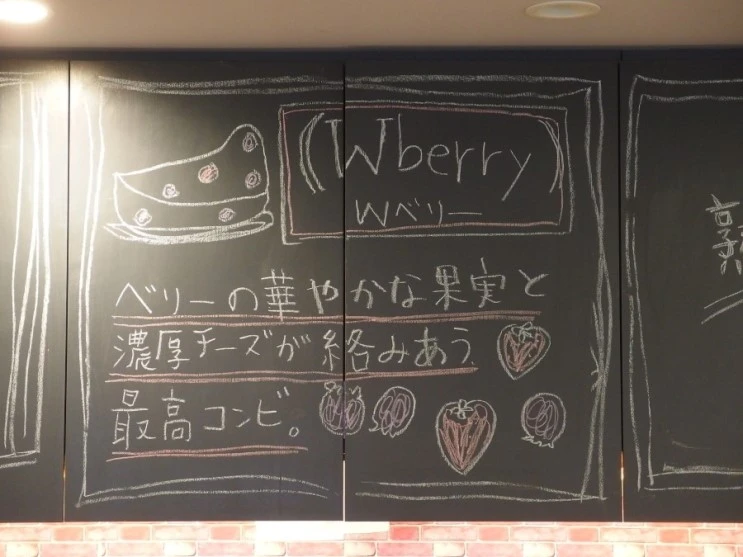 (Wberry)
Wベリー
ベリーの華やかな果実と
濃厚チーズが絡みあう
最高コンビ。